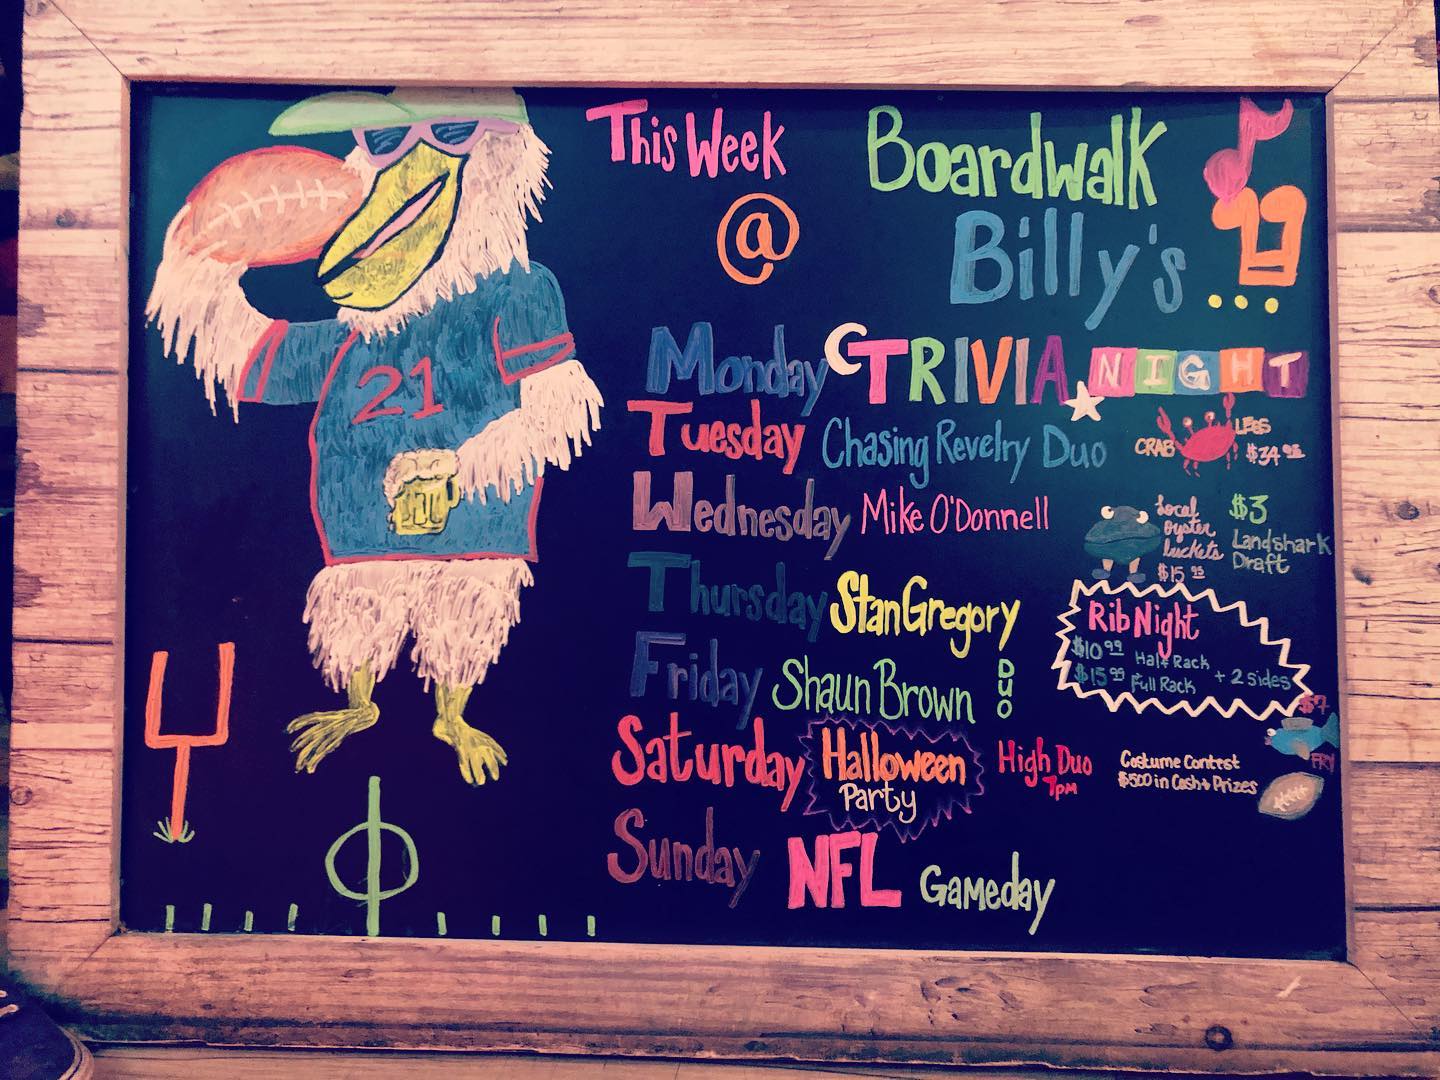 This Week
@
Boardwalk
Billy's
21
Monday TRIVIA NIGHT
Tuesday Chasing Revelry Duo
CRAB LEGS $34.95
Wednesday Mike O'Donnell
Local oyster buckets $15
$3 Landshark Draft
Thursday Stan Gregory
Rib Night
$10.99 Half Rack
$15.99 Full Rack
+ 2 sides
Friday Shaun Brown Duo
$7
FRY
Saturday Halloween Party
High Duo
7pm
Costume Contest
$500 in Cash & Prizes
Sunday NFL Gameday